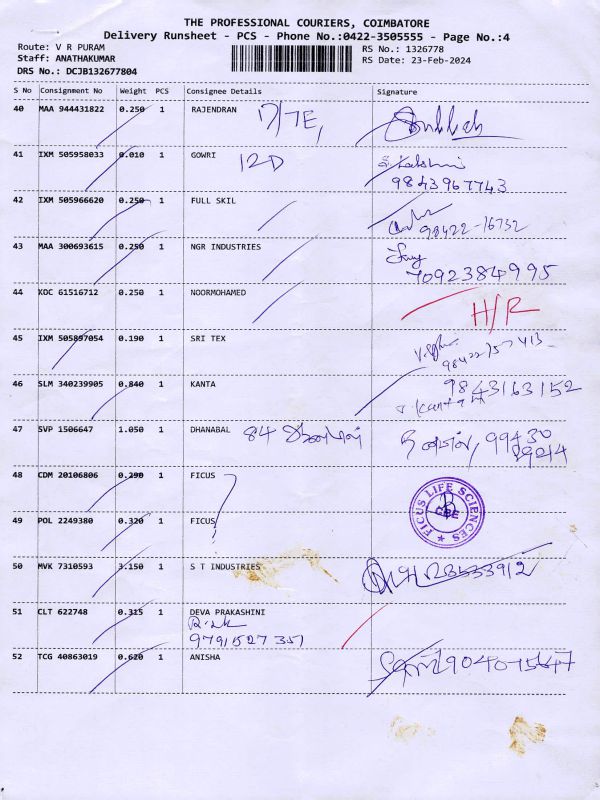 THE PROFESSIONAL COURIERS, COIMBATORE
Delivery Runsheet - PCS - Phone No.:0422-3505555 - Page No.:4
Route: V R PURAM
Staff: ANATHAKUMAR
DRS No.: DCJB132677804
RS No.: 1326778
RS Date: 23-Feb-2024
S No Consignment No Weight PCS Consignee Details Signature
40 MAA 944431822 0.250 1 RAJENDRAN 17/7E,
41 IXM 505958033 0.010 1 GOWRI 12D
9843967743
42 IXM 505966620 0.250 1 FULL SKIL
98422-16732
43 MAA 300693615 0.250 1 NGR INDUSTRIES
7092384995
44 KOC 61516712 0.250 1 NOORMOHAMED H/R
45 IXM 505897054 0.190 1 SRI TEX
46 SLM 340239905 0.840 1 KANTA 9843163152
47 SVP 1506647 1.050 1 DHANABAL 84 99430
48 CDM 20106806 0.290 1 FICUS
FICUS LIFE SCIENCES
CBE
49 POL 2249380 0.320 1 FICUS
50 MVK 7310593 3.150 1 S T INDUSTRIES
51 CLT 622748 0.315 1 DEVA PRAKASHINI
9791527351
52 TCG 40863019 0.620 1 ANISHA